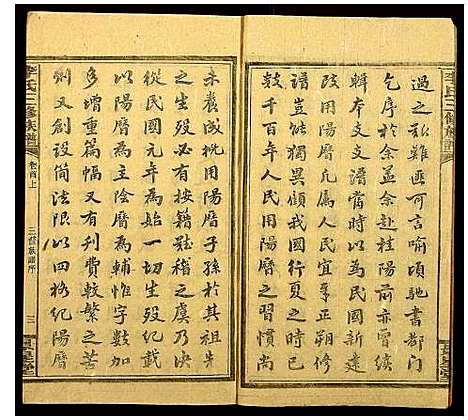 過之艱難匪可言喻頃馳書都門
乞序於余並余赴桂陽前亦曾續
輯本支譜當時以為民國新建
改用陽曆為人民宜奉正朔修
譜豈獨異傾我國行夏之時已
數千百年人民用陽曆習慣尚
未養成執用陽曆子孫於其祖先
之生歿必有按籍難稽之虞乃決
從民國元年為始一切生歿紀載
以陽曆為主陰曆為輔惟字數加
多增重篇幅又有刊費較繁之苦
劂又創設簡法限以四格紀陽曆
李氏三修族譜
卷首上
三修族譜所
三
李氏三修族譜